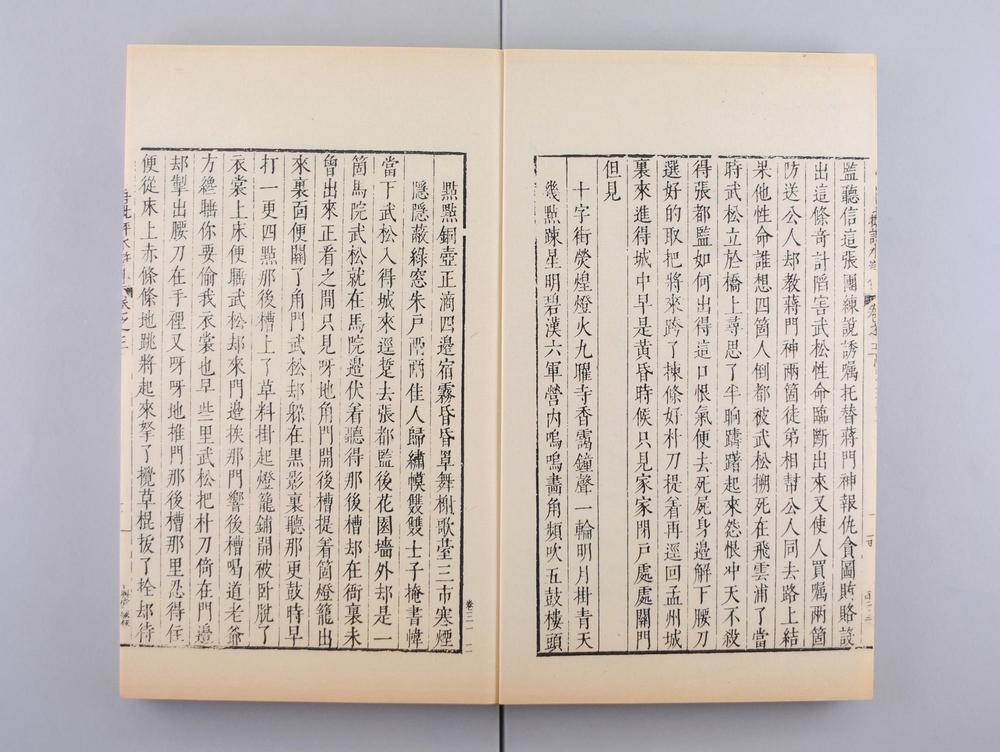 監聽信這張團練說誘嘱托替蔣門神報仇貪圖賄賂設
出這條奇計䧟害武松性命臨斷出來又使人買嘱兩箇
防送公人却教蔣門神兩箇徒弟相幇公人同去路上結
果他性命誰想四箇人倒都被武松搠死在飛雲浦了當
時武松立於橋上尋思了半晌躊躇起來怨恨冲天不殺
得張都監如何出得這口恨氣便去死屍身邊解下腰刀
選好的取把將來跨了揀條好朴刀提着再逕回孟州城
裏來進得城中早是黃昏時候只見家家閉戶處處關門
但見
十字街熒煌燈火九曜寺香靄鐘聲一輪明月掛青天
幾點踈星明碧漢六軍營内嗚嗚畵角頻吹五鼓樓頭
點點銅壺正滴四邊宿霧昏昏罩舞榭歌臺三市寒煙
隱隱蔽綠窓朱戶兩兩佳人歸繡幙雙雙士子掩書幃
當下武松入得城來逕踅去張都監後花園墻外却是一
箇馬院武松就在馬院邊伏着聽得那後槽却在衙裏未
曾出來正看之間只見呀地角門開後槽提着箇燈籠出
來裏面便關了角門武松却躲在黑影裏聽那更鼓時早
打一更四點那後槽上了草料掛起燈籠鋪開被卧脫了
衣裳上床便睡武松却來門邊挨那門響後槽喝道老爺
方纔睡你要偷我衣裳也早些里武松把朴刀倚在門邊
却掣出腰刀在手裡又呀呀地推門那後槽那里忍得住
便從床上赤條條地跳將起來拏了攪草棍拔了栓却待
卷三一 二